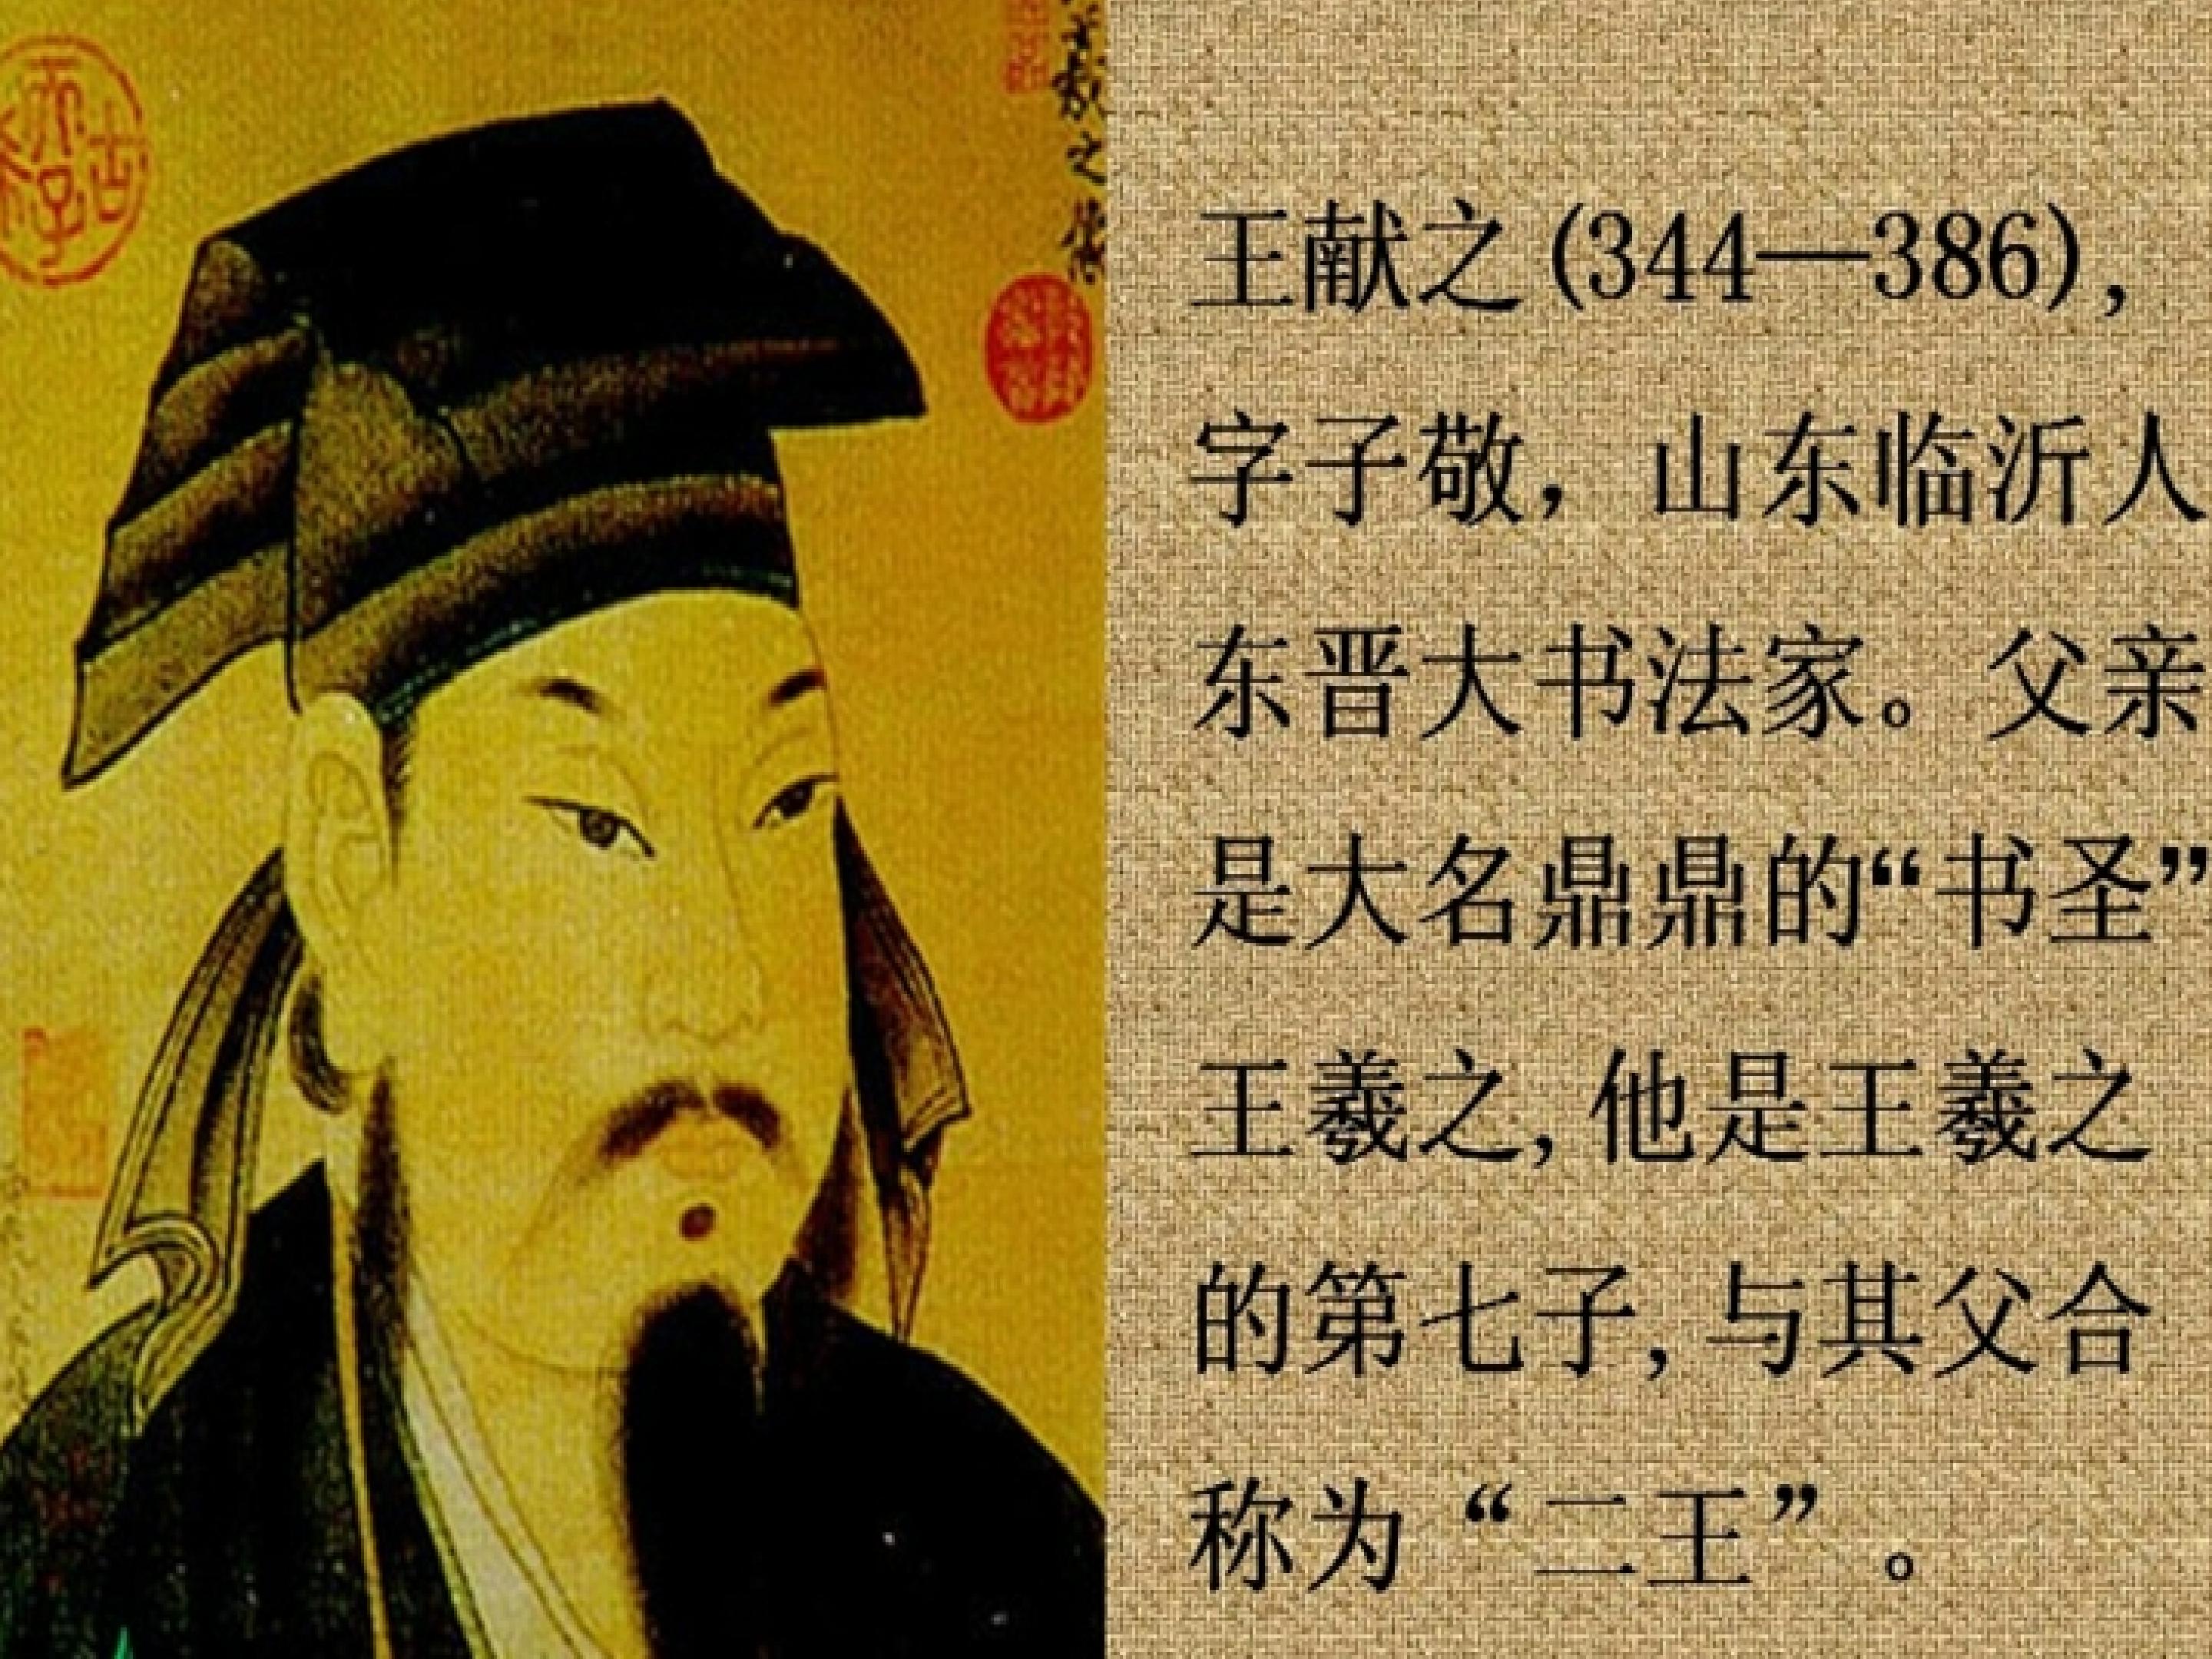 王献之(344—386),
字子敬，山东临沂人
东晋大书法家。父亲
是大名鼎鼎的“书圣”
王羲之,他是王羲之
的第七子,与其父合
称为“二王”。